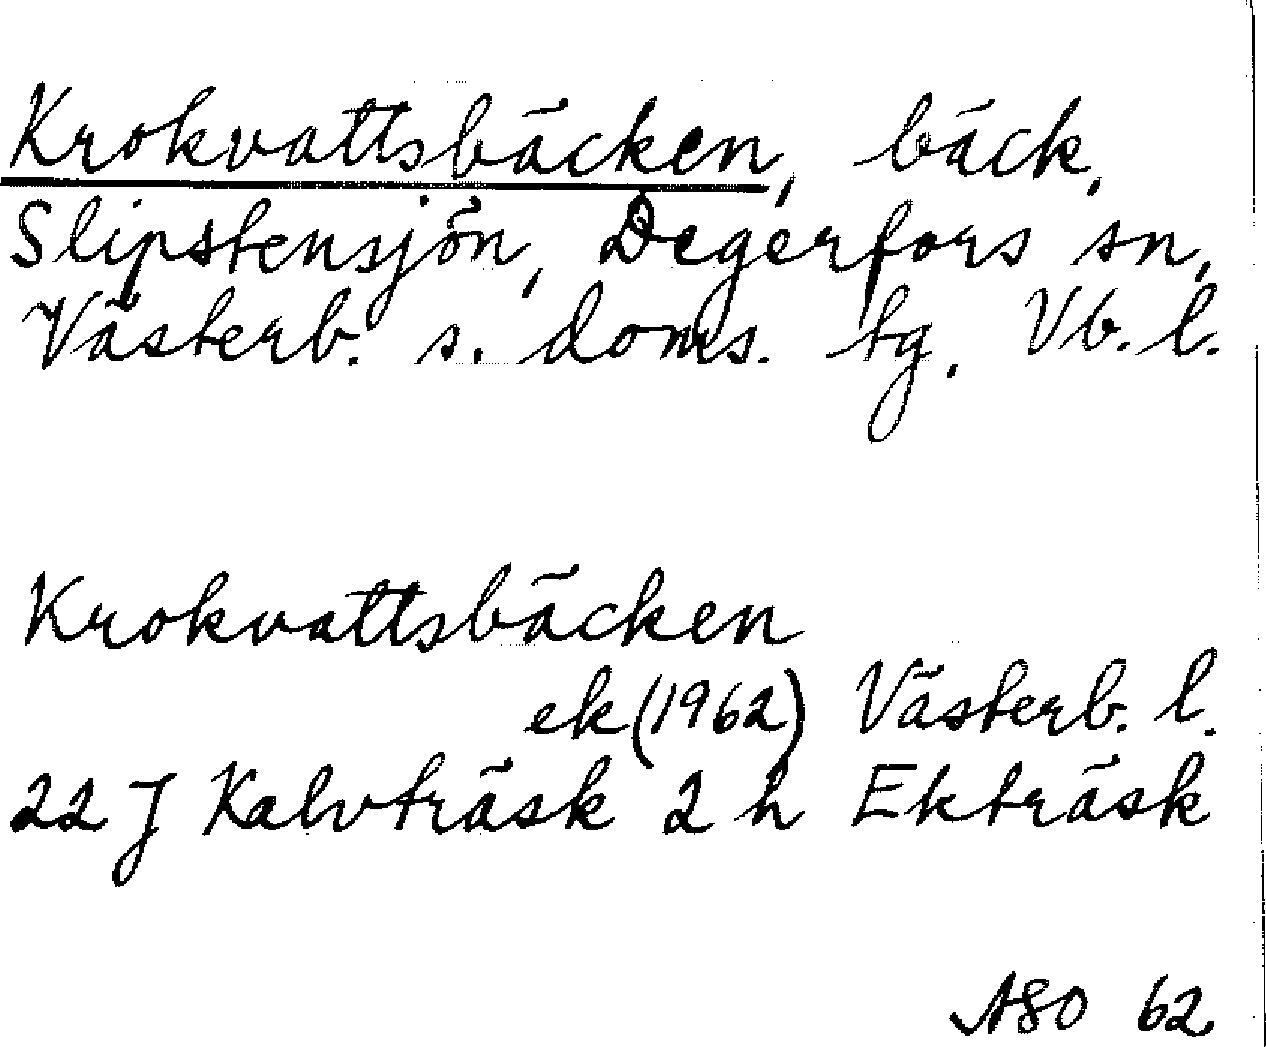 Krokvattsbäcken, bäck,
Slipstensjön, Degerfors sn,
Västerb. s. doms. tg, Vb. l.
Krokvattsbäcken
ek (1962) Västerb. l.
22 J Kalvträsk 2 h Ekträsk
ASO 62